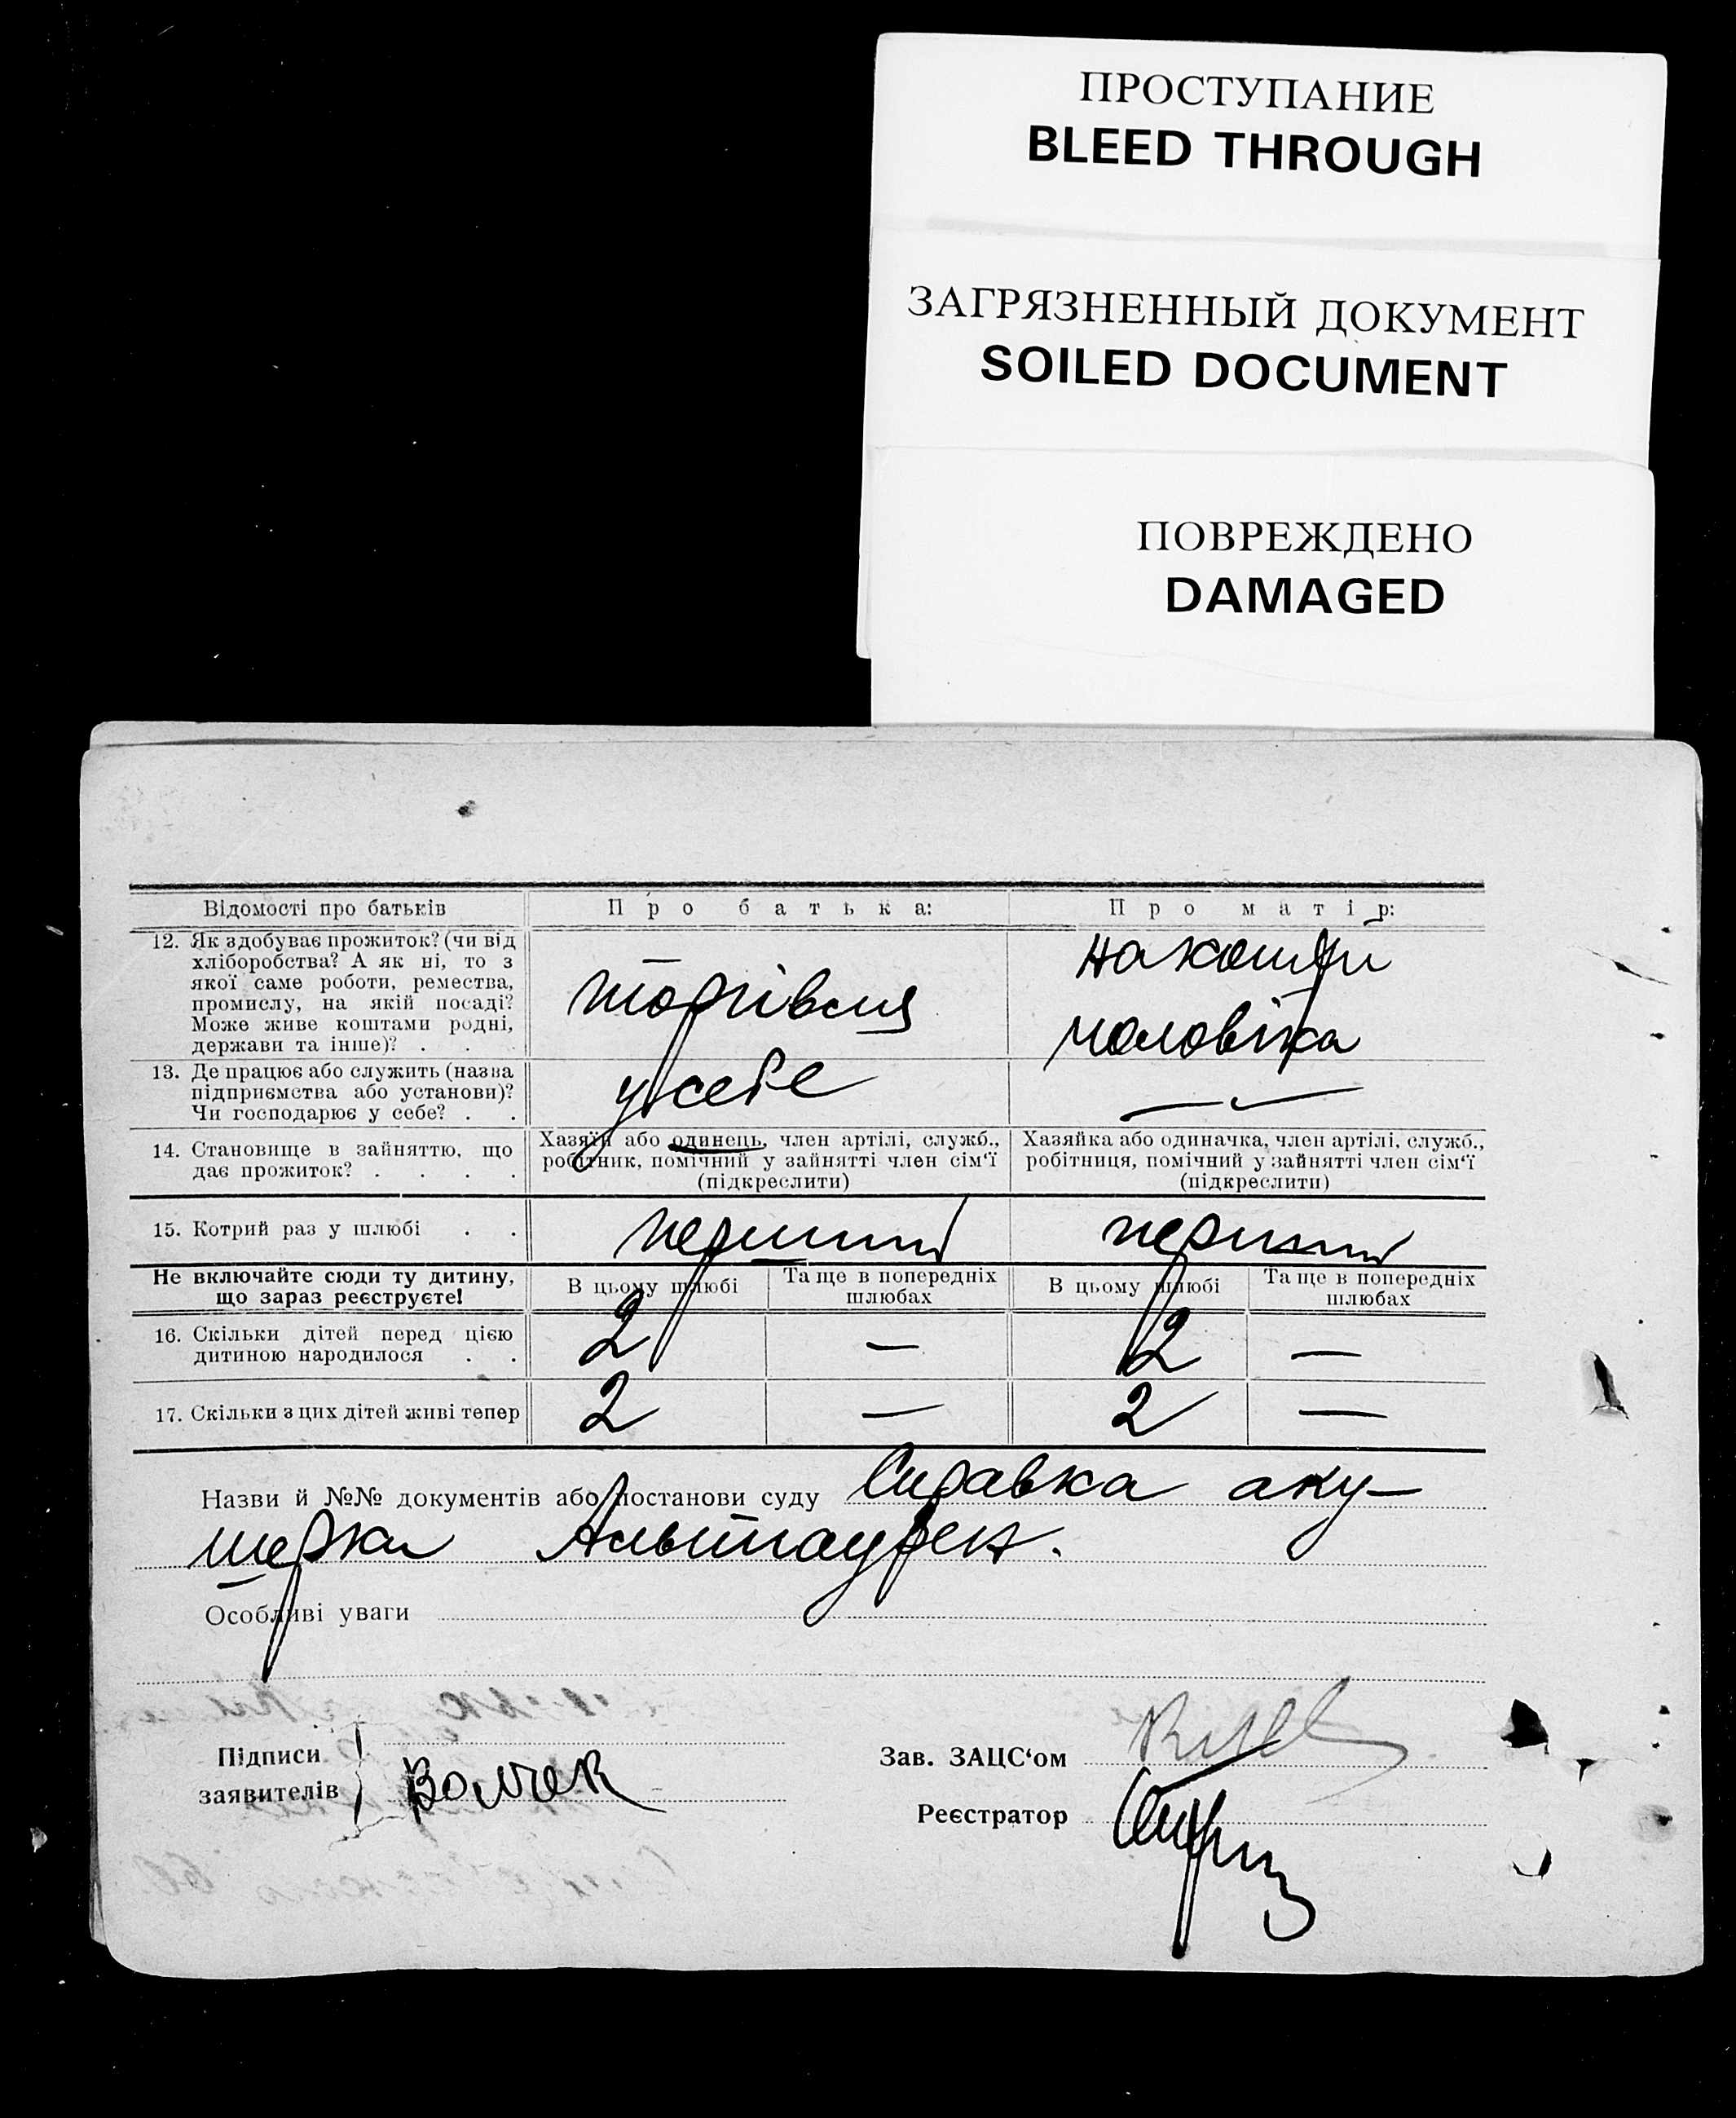 ПРОСТУПАНИЕ
BLEED THROUGH
ЗАГРЯЗНЕННЫЙ ДОКУМЕНТ
SOILED DOCUMENT
ПОВРЕЖДЕНО
DAMAGED
Відомості про батьків
Про батька:
Про матір:
12. Як здобуває прожиток? (чи від
хліборобства? А як ні, то з
якої саме роботи, ремества,
промислу, на якій посаді?
Може живе коштами родні,
держави та інше)? . .
торгівля
на кошти
чоловіка
13. Де працює або служить (назва
підприємства або установи)?
Чи господарює у себе? . .
у себе
—
14. Становище в зайняттю, що
дає прожиток? . . . .
Хазяїн або одинець, член артілі, служб.,
робітник, помічний у зайнятті член сім'ї
(підкреслити)
Хазяйка або одиначка, член артілі, служб.,
робітниця, помічний у зайнятті член сім'ї
(підкреслити)
15. Котрий раз у шлюбі . .
перший
перший
Не включайте сюди ту дитину,
що зараз реєструєте!
В цьому шлюбі
Та ще в попередніх
шлюбах
В цьому шлюбі
Та ще в попередніх
шлюбах
16. Скільки дітей перед цією
дитиною народилося . .
2 — 2 —
17. Скільки з цих дітей живі тепер
2 — 2 —
Назви й №№ документів або постанови суду Справка аку-
шерки
Особливі уваги
Підписи
заявителів
Волчек
Зав. ЗАЦС'ом
Реєстратор